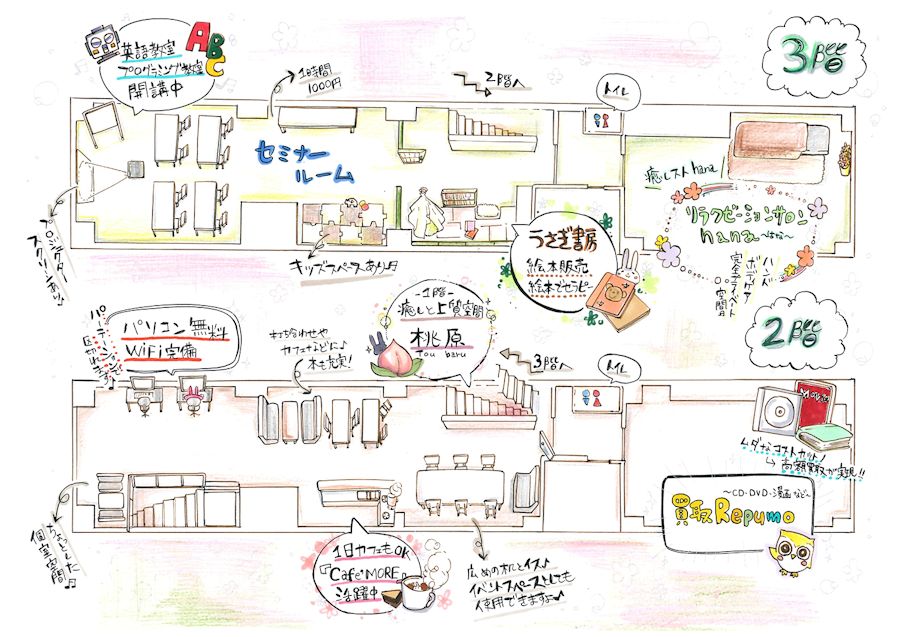 3階
英語教室
プログラミング教室
開講中
ABC
1時間
1000円
2階へ
トイレ
セミナー
ルーム
癒しスト hana
リラクゼーションサロン
hana
~はな~
ハンド
ボディケア
完全プライベート
空間♪
プロジェクター
スクリーンあり♪
キッズスペースあり♪
うさぎ書房
絵本販売
絵本でセラピー
2階
パソコン無料
WiFi完備
パーテーションで
区切れます♪
打ち合わせや
カフェなどに♪
本も充実!
-1階-
癒しと上質空間
桃原
Tou baru
3階へ
トイレ
Movie
ムダなコストカット!
高額買取が実現!!
~CD・DVD・漫画など~
買取Repumo
ちょっとした
個室空間♪
1日カフェもOK
『Cafe*MORE』
活躍中
広めの机とイス♪
イベントスペースとしても
使用できますよ♪